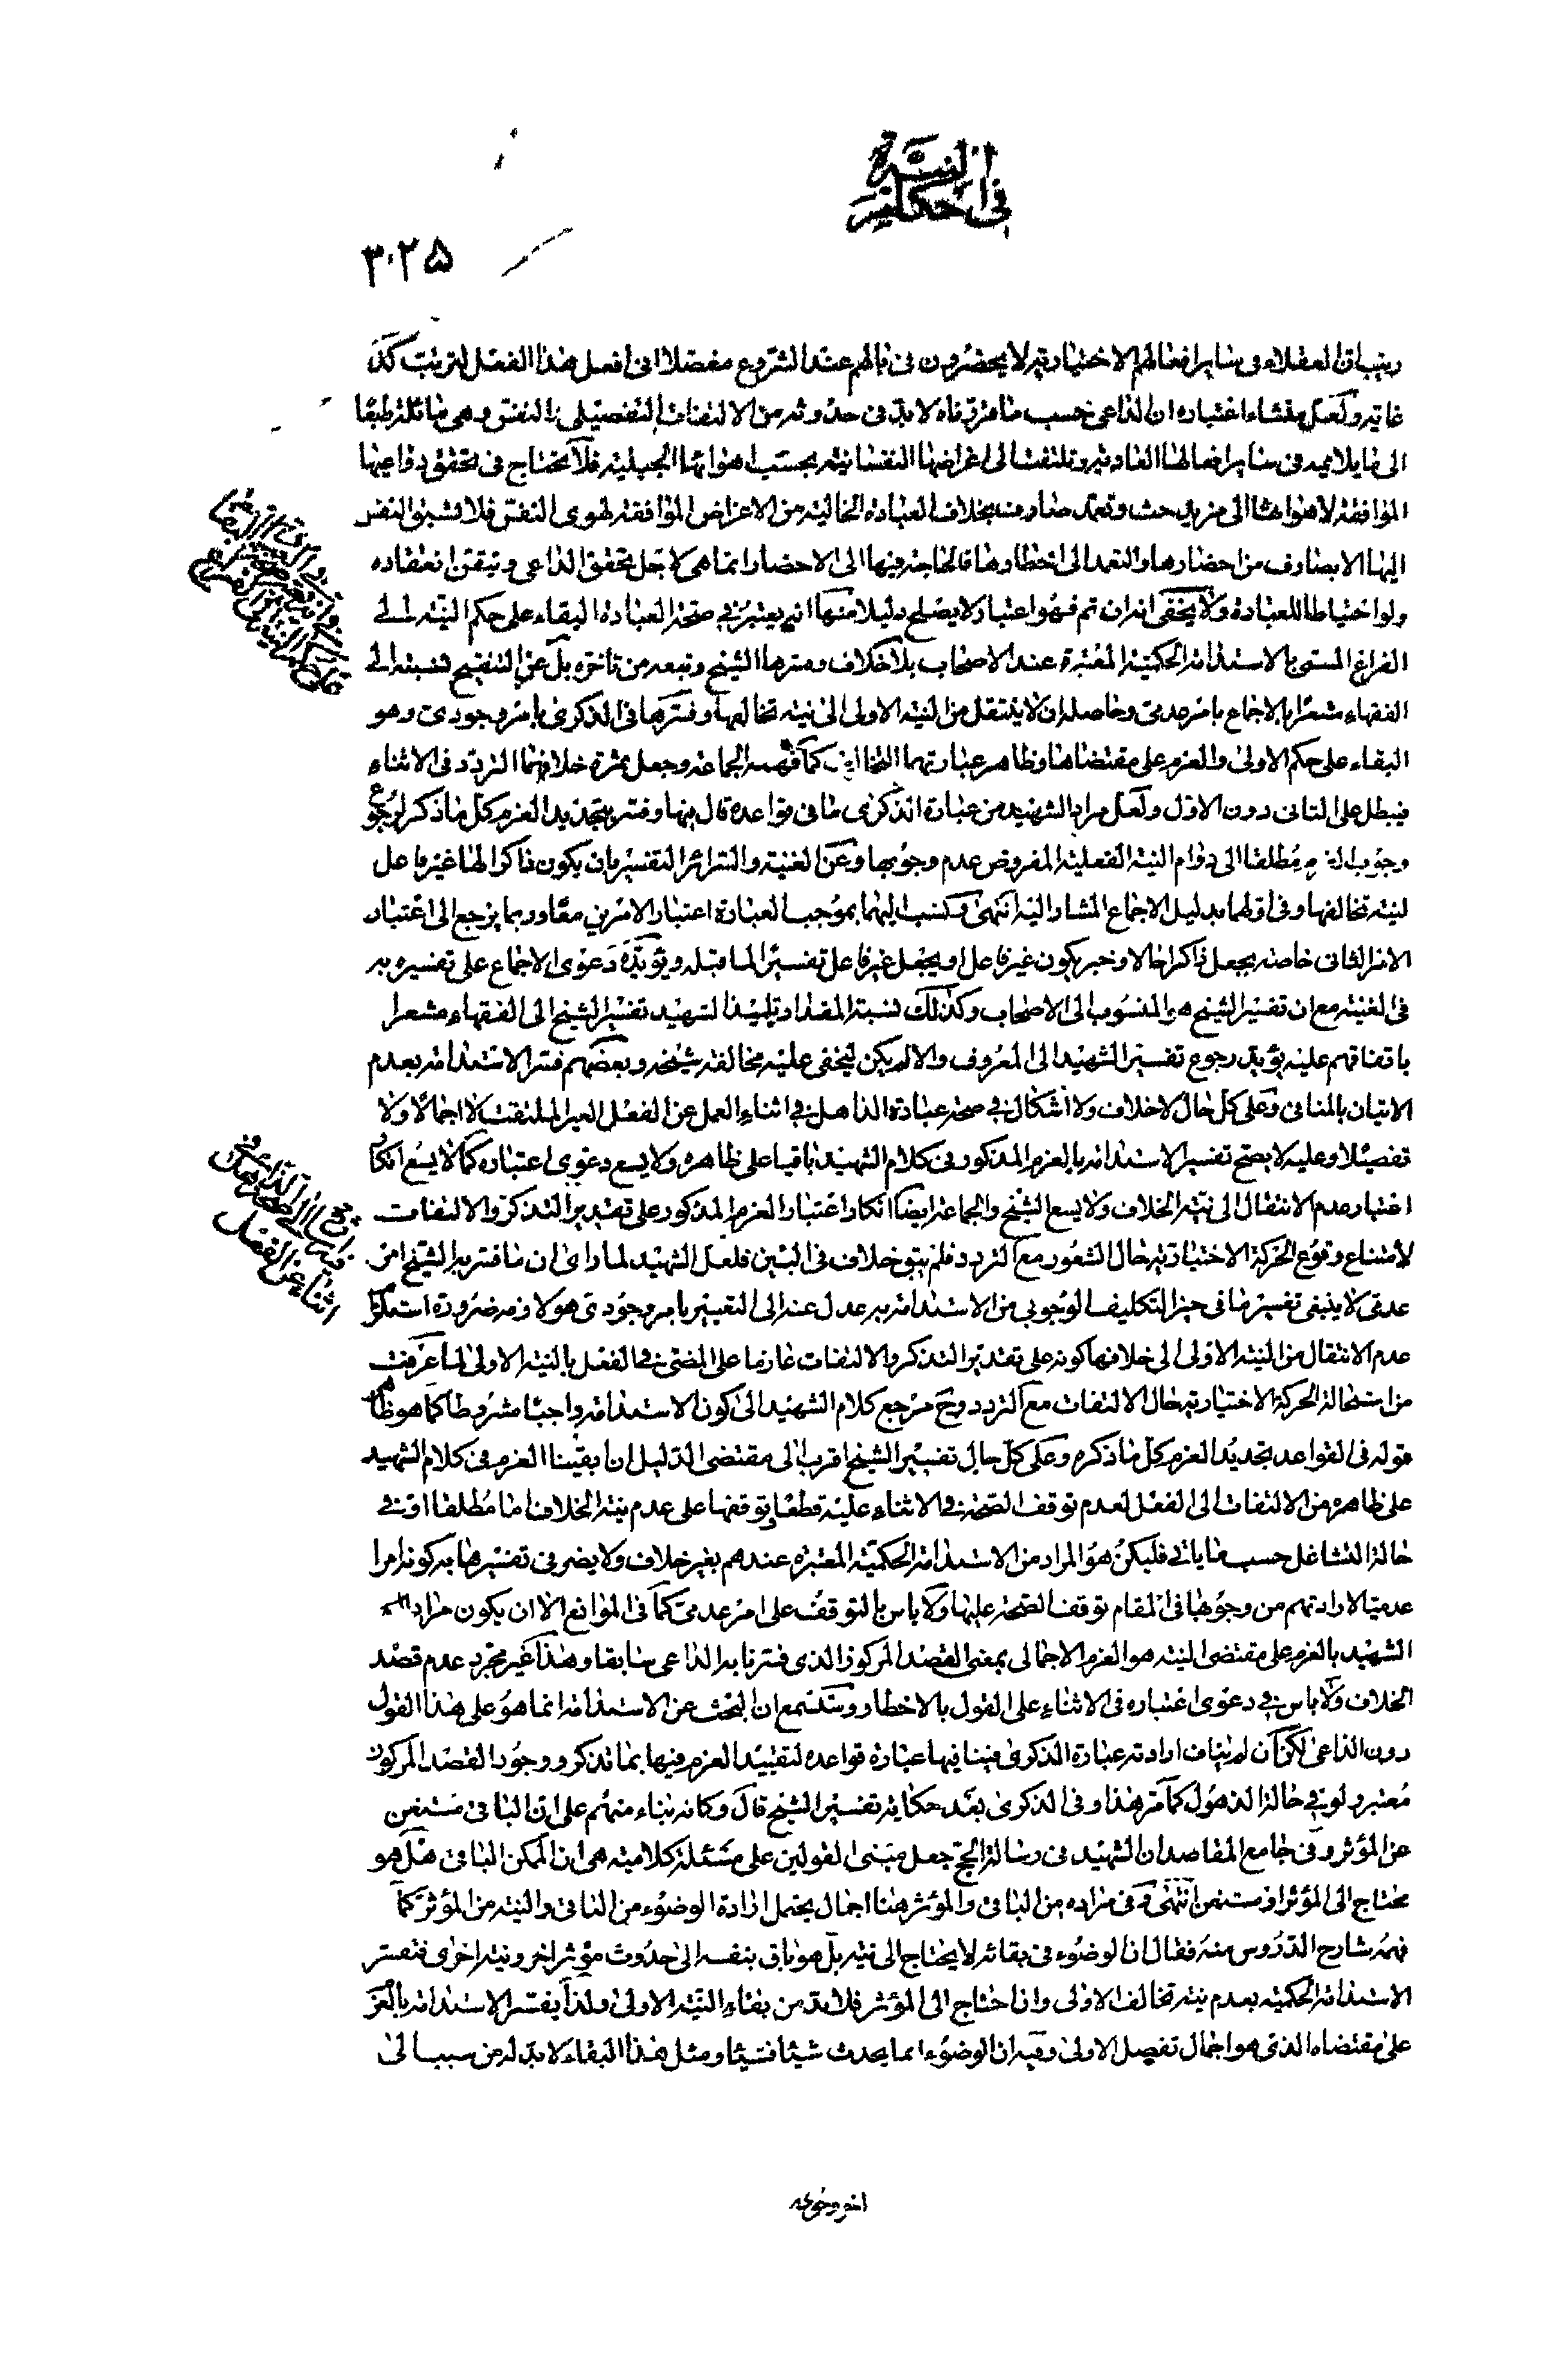 في احكام النية
٣٠٢٥
ريب ان العقلاء فى ساير افعالهم الاختيارية لا يحضرون فى بالهم عند الشروع مفصلا انى افعل هذا الفعل لترتب كذا
غاية ولعل منشاء اعتباره ان الداعى حسب ما عرفناه لا بد فى حدوثه من الالتفات التفصيلى والنفس وهى مائلة طبعا
الى ما يلايمه فى ساير افعالها العادية وتلتفت الى اغراضها النفسانية بحسب اهوائها الجبلية فلا تحتاج فى تحقق دواعيها
الموافقة لاهوائها الى مزيد حث وتعمد صارف بخلاف العبادة الخالية من الاعراض الموافقة لهوى النفس فلا تشبق النفس
اليها الا بصارف من احضارها والتعمد الى اخطارها فالحاجة فيها الى الاحضار انما هى لاجل تحقق الداعى وتيقن انعقاده
ولو احتياطا للعبادة ولا يخفى انه ان تم فهو اعتبار لا يصلح دليلا منها انه يعتبر في صحة العبادة البقاء على حكم النية الى
الفراغ المسمى بالاستدامة الحكمية المعتبرة عند الاصحاب بلا خلاف وفسرها الشيخ وتبعه من تاخره بل عن التنقيح نسبته الى
الفقهاء مشعرا بالاجماع بامر عدمى وحاصله ان لا ينتقل من النية الاولى الى نية تخالفها وفسرها فى الذكرى بامر وجودى وهو
البقاء على حكم الاولى والعزم على مقتضاها وظاهر عبارتهما التخالف كما فهمه الجماعة وجعل ثمرة خلافهما التردد فى الاثناء
فيبطل على الثانى دون الاول ولعل مراد الشهيد من عبارة الذكرى ما فى قواعده قال فيها وفسر بتجديد العزم كلما ذكر لرجوع
وجوب العزم مطلقا الى دوام النية الفعلية المفروض عدم وجوبها وعن الغنية والسرائر التفسير بان يكون ذاكرا لها غير فاعل
لنية تخالفها وفى اولهما بدليل الاجماع المشار اليه انتهى ونسب اليهما بموجب العبارة اعتبار الامرين معا وربما يرجع الى اعتبار
الامر الثانى خاصة بجعل ذاكرا حالا وخبر يكون غير فاعل او يجعل غير فاعل تفسيرا لما قبله ويؤيده دعوى الاجماع على تفسيره به
فى الغنية مع ان تفسير الشيخ هو المنسوب الى الاصحاب وكذلك نسبة المقداد تلميذ الشهيد تفسير الشيخ الى الفقهاء مشعرا
باتفاقهم عليه يؤيد رجوع تفسير الشهيد الى المعروف والا لم يكن ليخفى عليه مخالفة شيخه وبعضهم فسر الاستدامة بعدم
الاتيان بالمنافى وعلى كل حال لا خلاف ولا اشكال في صحة عبادة الذاهل في اثناء العمل عن الفعل الغير الملتفت لا اجمالا ولا
تفصيلا وعليه لا يصح تفسير الاستدامة بالعزم المذكور فى كلام الشهيد باقيا على ظاهره ولا يسع دعوى اعتباره كما لا يسع انكار
اعتبار عدم الانتقال الى نية الخلاف ولا يسع الشيخ والجماعة ايضا انكار اعتبار العزم المذكور على تقدير التذكر والالتفات
لامتناع وقوع الحركة الاختيارية حال الشعور مع التردد فلم يبق خلاف فى البين فلعل الشهيد لما راى ان ما فسر به الشيخ امر
عدمى لا ينبغى تفسير ما فى حيز التكليف الوجوبى من الاستدامة به عدل عنه الى التعبير بامر وجودى هو لازمه ضرورة استلزام
عدم الانتقال من النية الاولى الى خلافها كونه على تقدير التذكر والالتفات عازما على المضى في الفعل بالنية الاولى لما عرفت
من استحالة الحركة الاختيارية حال الالتفات مع التردد وح مرجع كلام الشهيد الى كون الاستدامة واجبا مشروطا كما هو ظاهر
قوله فى القواعد بتجديد العزم كل ما ذكره وعلى كل حال تفسير الشيخ اقرب الى مقتضى الدليل ان ابقينا العزم فى كلام الشهيد
على ظاهره من الالتفات الى الفعل لعدم توقف الصحة في الاثناء عليه قطعا وتوقفها على عدم نية الخلاف اما مطلقا او في
حالة التشاغل حسب ما ياتى فليكن هو المراد من الاستدامة الحكمية المعتبرة عندهم بغير خلاف ولا يضر فى تفسيرها به كونه امرا
عدميا لارادتهم من وجوبها فى المقام توقف الصحة عليها ولا باس بالتوقف على امر عدمى كما فى الموانع الا ان يكون مراد
الشهيد بالعزم على مقتضى النية هو العزم الاجمالى بمعنى القصد المركوز الذى فسرنا به الداعى سابقا وهذا غير مجرد عدم قصد
الخلاف ولا باس في دعوى اعتباره فى الاثناء على القول بالاخطار وستسمع ان البحث عن الاستدامة انما هو على هذا القول
دون الداعى لكن ان لم يناف ارادته عبارة الذكرى فينافيها عبارة قواعده لتقييد العزم فيها بما تذكر ووجود القصد المركوز
معتبر ولو في حالة الذهول كما مر هذا وفى الذكرى بعد حكاية تفسير الشيخ قال وكانه بناء منهم على ان الباقى مستغن
عن المؤثر وفى جامع المقاصد ان الشهيد فى رسالة الحج جعل مبنى القولين على مسئلة كلامية هى ان الممكن الباقى هل هو
محتاج الى المؤثر او مستغن انتهى وفى مراده من الباقى والمؤثر هنا اجمال يحتمل ارادة الوضوء من الباقى والنية من المؤثر كما
فهمه شارح الدروس منه فقال ان الوضوء فى بقائه لا يحتاج الى نية بل هو باق بنفسه الى حدوث مؤثر اخر ونية اخرى فتفسر
الاستدامة الحكمية بعدم نية تخالف الاولى وان احتاج الى المؤثر فلا بد من بقاء النية الاولى ولذا يفسر الاستدامة بالعزم
على مقتضاه الذى هو اجمال تفصيل الاولى وفيه ان الوضوء انما يحدث شيئا فشيئا ومثل هذا البقاء لا بد له من سبب الى